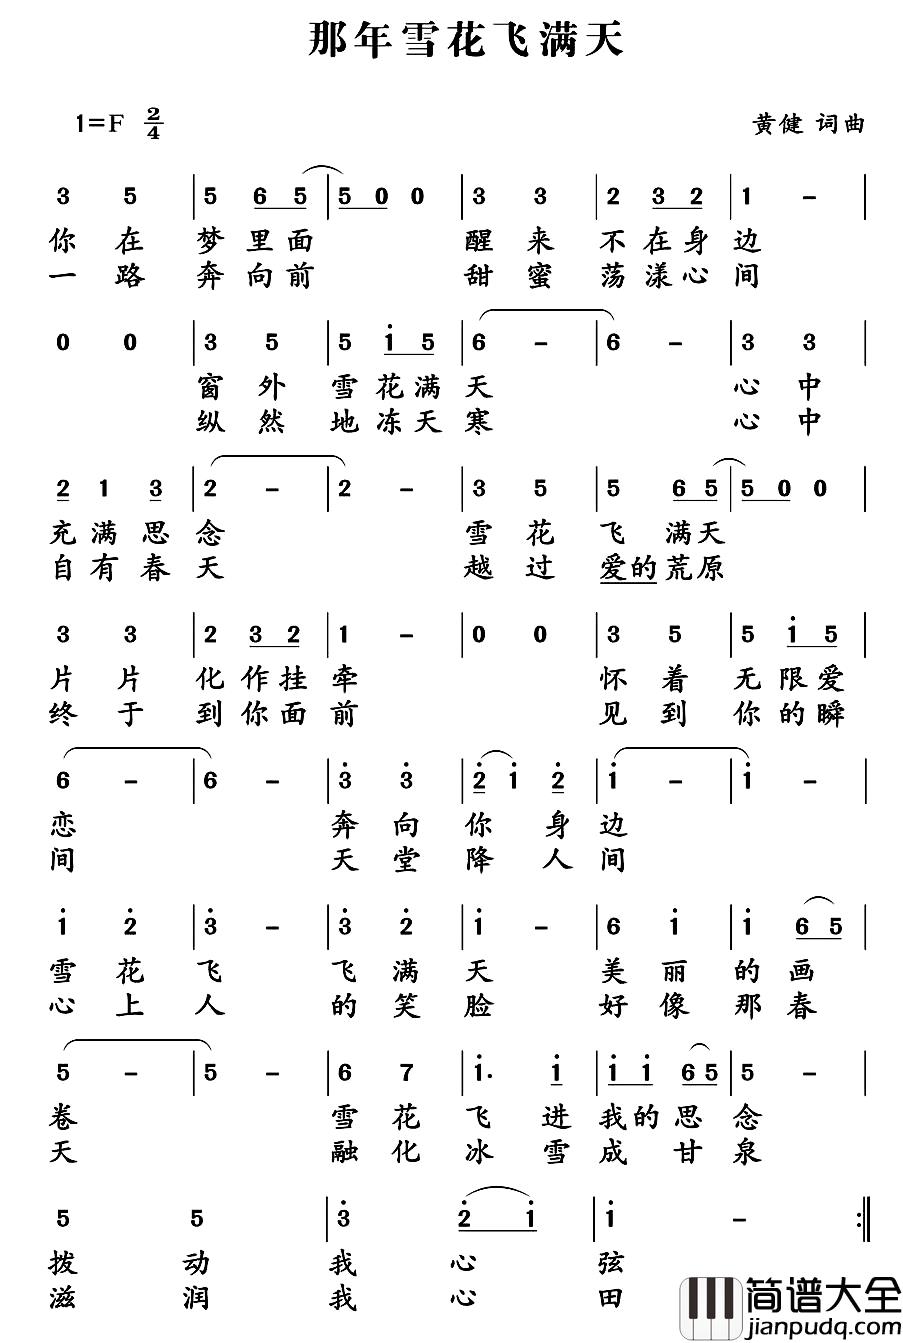 那年雪花飞满天
1=F 2/4 黄健 词曲
3 5 | 5 6 5 | 5 0 0 | 3 3 | 2 3 2 | 1 - |
你在梦里面 醒来不在身边
一路奔向前 甜蜜荡漾心间
0 0 | 3 5 | 5 1 5 | 6 - | 6 - | 3 3 |
窗外雪花满天 心中
纵然地冻天寒 心中
2 1 3 | 2 - | 2 - | 3 5 | 5 6 5 | 5 0 0 |
充满思念 雪花飞满天
自有春天 越过爱的荒原
3 3 | 2 3 2 | 1 - | 0 0 | 3 5 | 5 1 5 |
片片化作挂牵 怀着无限爱
终于到你面前 见到你的瞬
6 - | 6 - | 3 3 | 2 1 2 | 1 - | 1 - |
恋 奔向你身边
间 天堂降人间
1 2 | 3 - | 3 2 | 1 - | 6 1 | 1 6 5 |
雪花飞飞满天美丽的画
心上人的笑脸好像那春
5 - | 5 - | 6 7 | 1. 1 | 1 1 6 5 | 5 - |
卷 雪花飞进我的思念
天 融化冰雪成甘泉
5 5 | 3 2 1 | 1 - :||
拨动我心弦
滋润我心田
简谱大全
jianpudq.com